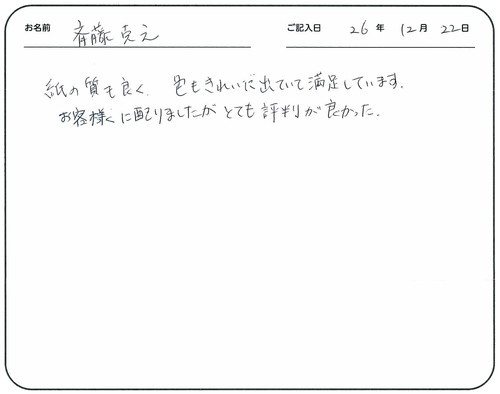 お名前 斉藤克え ご記入日 26年 12月 22日
紙の質も良く、色もきれいに出ていて満足しています.
お客様に配りましたがとても評判が良かった.